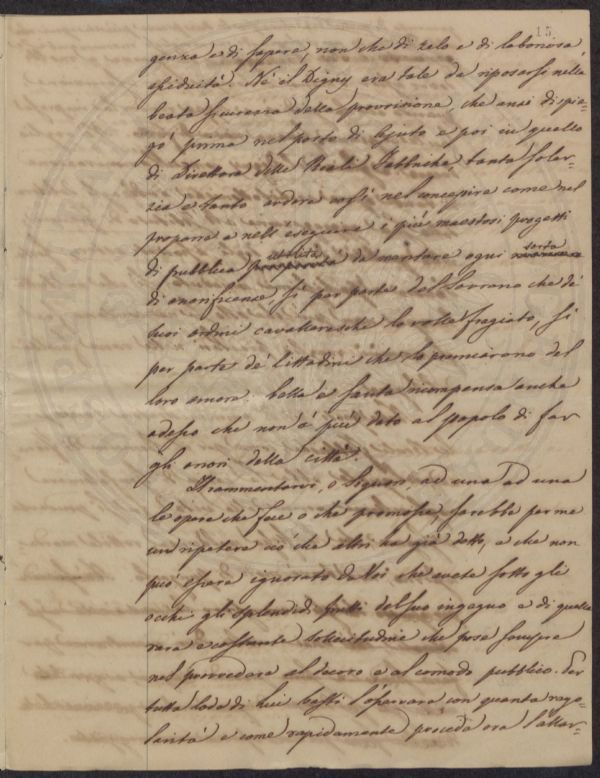 15.
genza e di sapere, non che di zelo e di laboriosa
efficacità. Né il Digny era tale da riposarsi nella
beata sicurezza della provvisione, che anzi dispie-
gò prima nel posto di Ajuto e poi in quello
di Direttore delle Reali Fabbriche, tanta soler-
zia e tanto ardore così nel concepire come nel
proporre e nell'eseguire i più maestosi progetti
di pubblica utilità da meritare ogni sorta
di onorificenze, sì per parte del Sovrano che de'
suoi ordini cavallereschi lo volle fregiato, sì
per parte de' Cittadini che lo premiarono del
loro amore: bella e santa ricompensa anche
adesso che non è più dato al popolo di far
gli onori della città.
Il rammentarvi, o Signori, ad una ad una
le opere che fece o che promosse, sarebbe per me
un ripetere ciò che altri ha già detto, e che non
può essere ignorato da Voi che avete sotto gli
occhi gli splendidi frutti del suo ingegno e di quella
rara e costante sollecitudine che pose sempre
nel provvedere al decoro e al comodo pubblico. Per
tutta lode di Lui basti l'osservare con quanta rego-
larità e come rapidamente proceda ora l'atter-